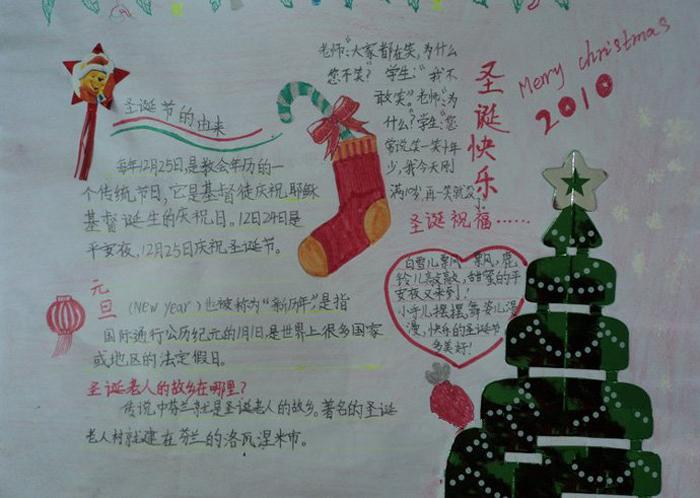 圣诞节的由来
每年12月25日,是教会年历的一
个传统节日,它是基督徒庆祝耶稣
基督诞生的庆祝日。12日24日是
平安夜,12月25日庆祝圣诞节。
老师:“大家都在笑,为什么
您不笑?学生:“我不
敢笑。”老师:“为
什么?学生:“您
常说笑一笑十年
少,我今天刚
满10岁,再一笑就没
圣诞快乐
Merry christmas
2010
圣诞祝福……
白雪儿飘风飘风,鹿
铃儿敲敲敲,甜蜜的平
安夜又来到!
小手儿摆摆,舞姿儿漫
漫,快乐的圣诞节
多美好!
元旦
(New year)也被称为“新历年”是指
国际通行公历纪元的1月1日,是世界上很多国家
或地区的法定假日。
圣诞老人的故乡在哪里?
传说中芬兰就是圣诞老人的故乡。著名的圣诞
老人村就建在芬兰的洛瓦涅米市。